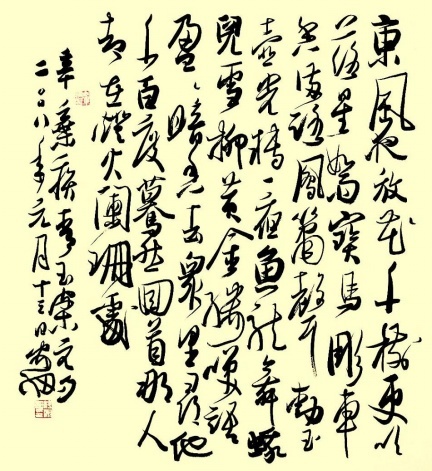 東風夜放花千樹更吹
落星如雨寶馬彫車
香滿路鳳簫聲動玉
壺光轉一夜魚龍舞蛾
兒雪柳黃金縷笑語
盈〻暗香去衆里尋他
千百度驀然回首那人
却在燈火闌珊處
辛棄疾青玉案元夕
二〇〇八年元月十三日